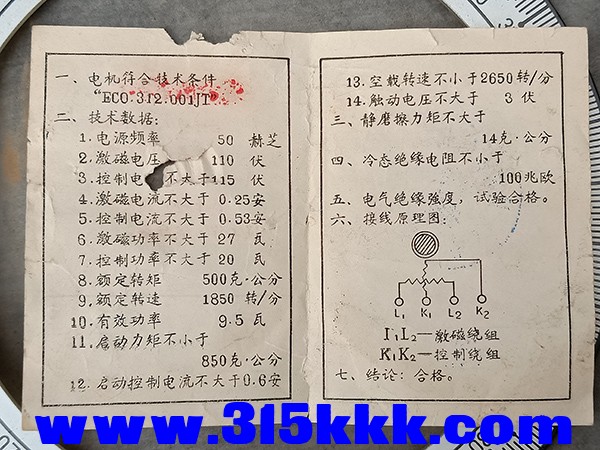 一、电机符合技术条件
"ECO.312.001JT"
二、技术数据:
1.电源频率 50 赫芝
2.激磁电压 110 伏
3.控制电 不大于115 伏
4.激磁电流不大于 0.25安
5.控制电流不大于 0.53安
6.激磁功率不大于 27 瓦
7.控制功率不大于 20 瓦
8.额定转矩 500克·公分
9.额定转速 1850 转/分
10.有效功率 9.5 瓦
11.启动力矩不小于
850克·公分
12.启动控制电流不大于0.6安
13.空载转速不小于2650转/分
14.触动电压不大于 3 伏
三、静磨擦力矩不大于
14克·公分
四、冷态绝缘电阻不小于
100兆欧
五、电气绝缘强度,试验合格。
六、接线原理图:
L₁ K₁ L₂ K₂
L₁L₂—激磁绕组
K₁K₂—控制绕组
七、结论:合格。
www.315kkk.com